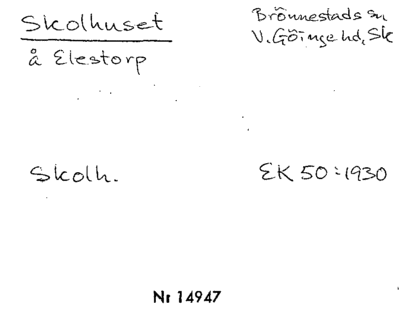 Skolhuset
å Elestorp
Brönnestads sn
V. Göinge hd, Sk
Skolh.
EK 50:1930
Nr 14947